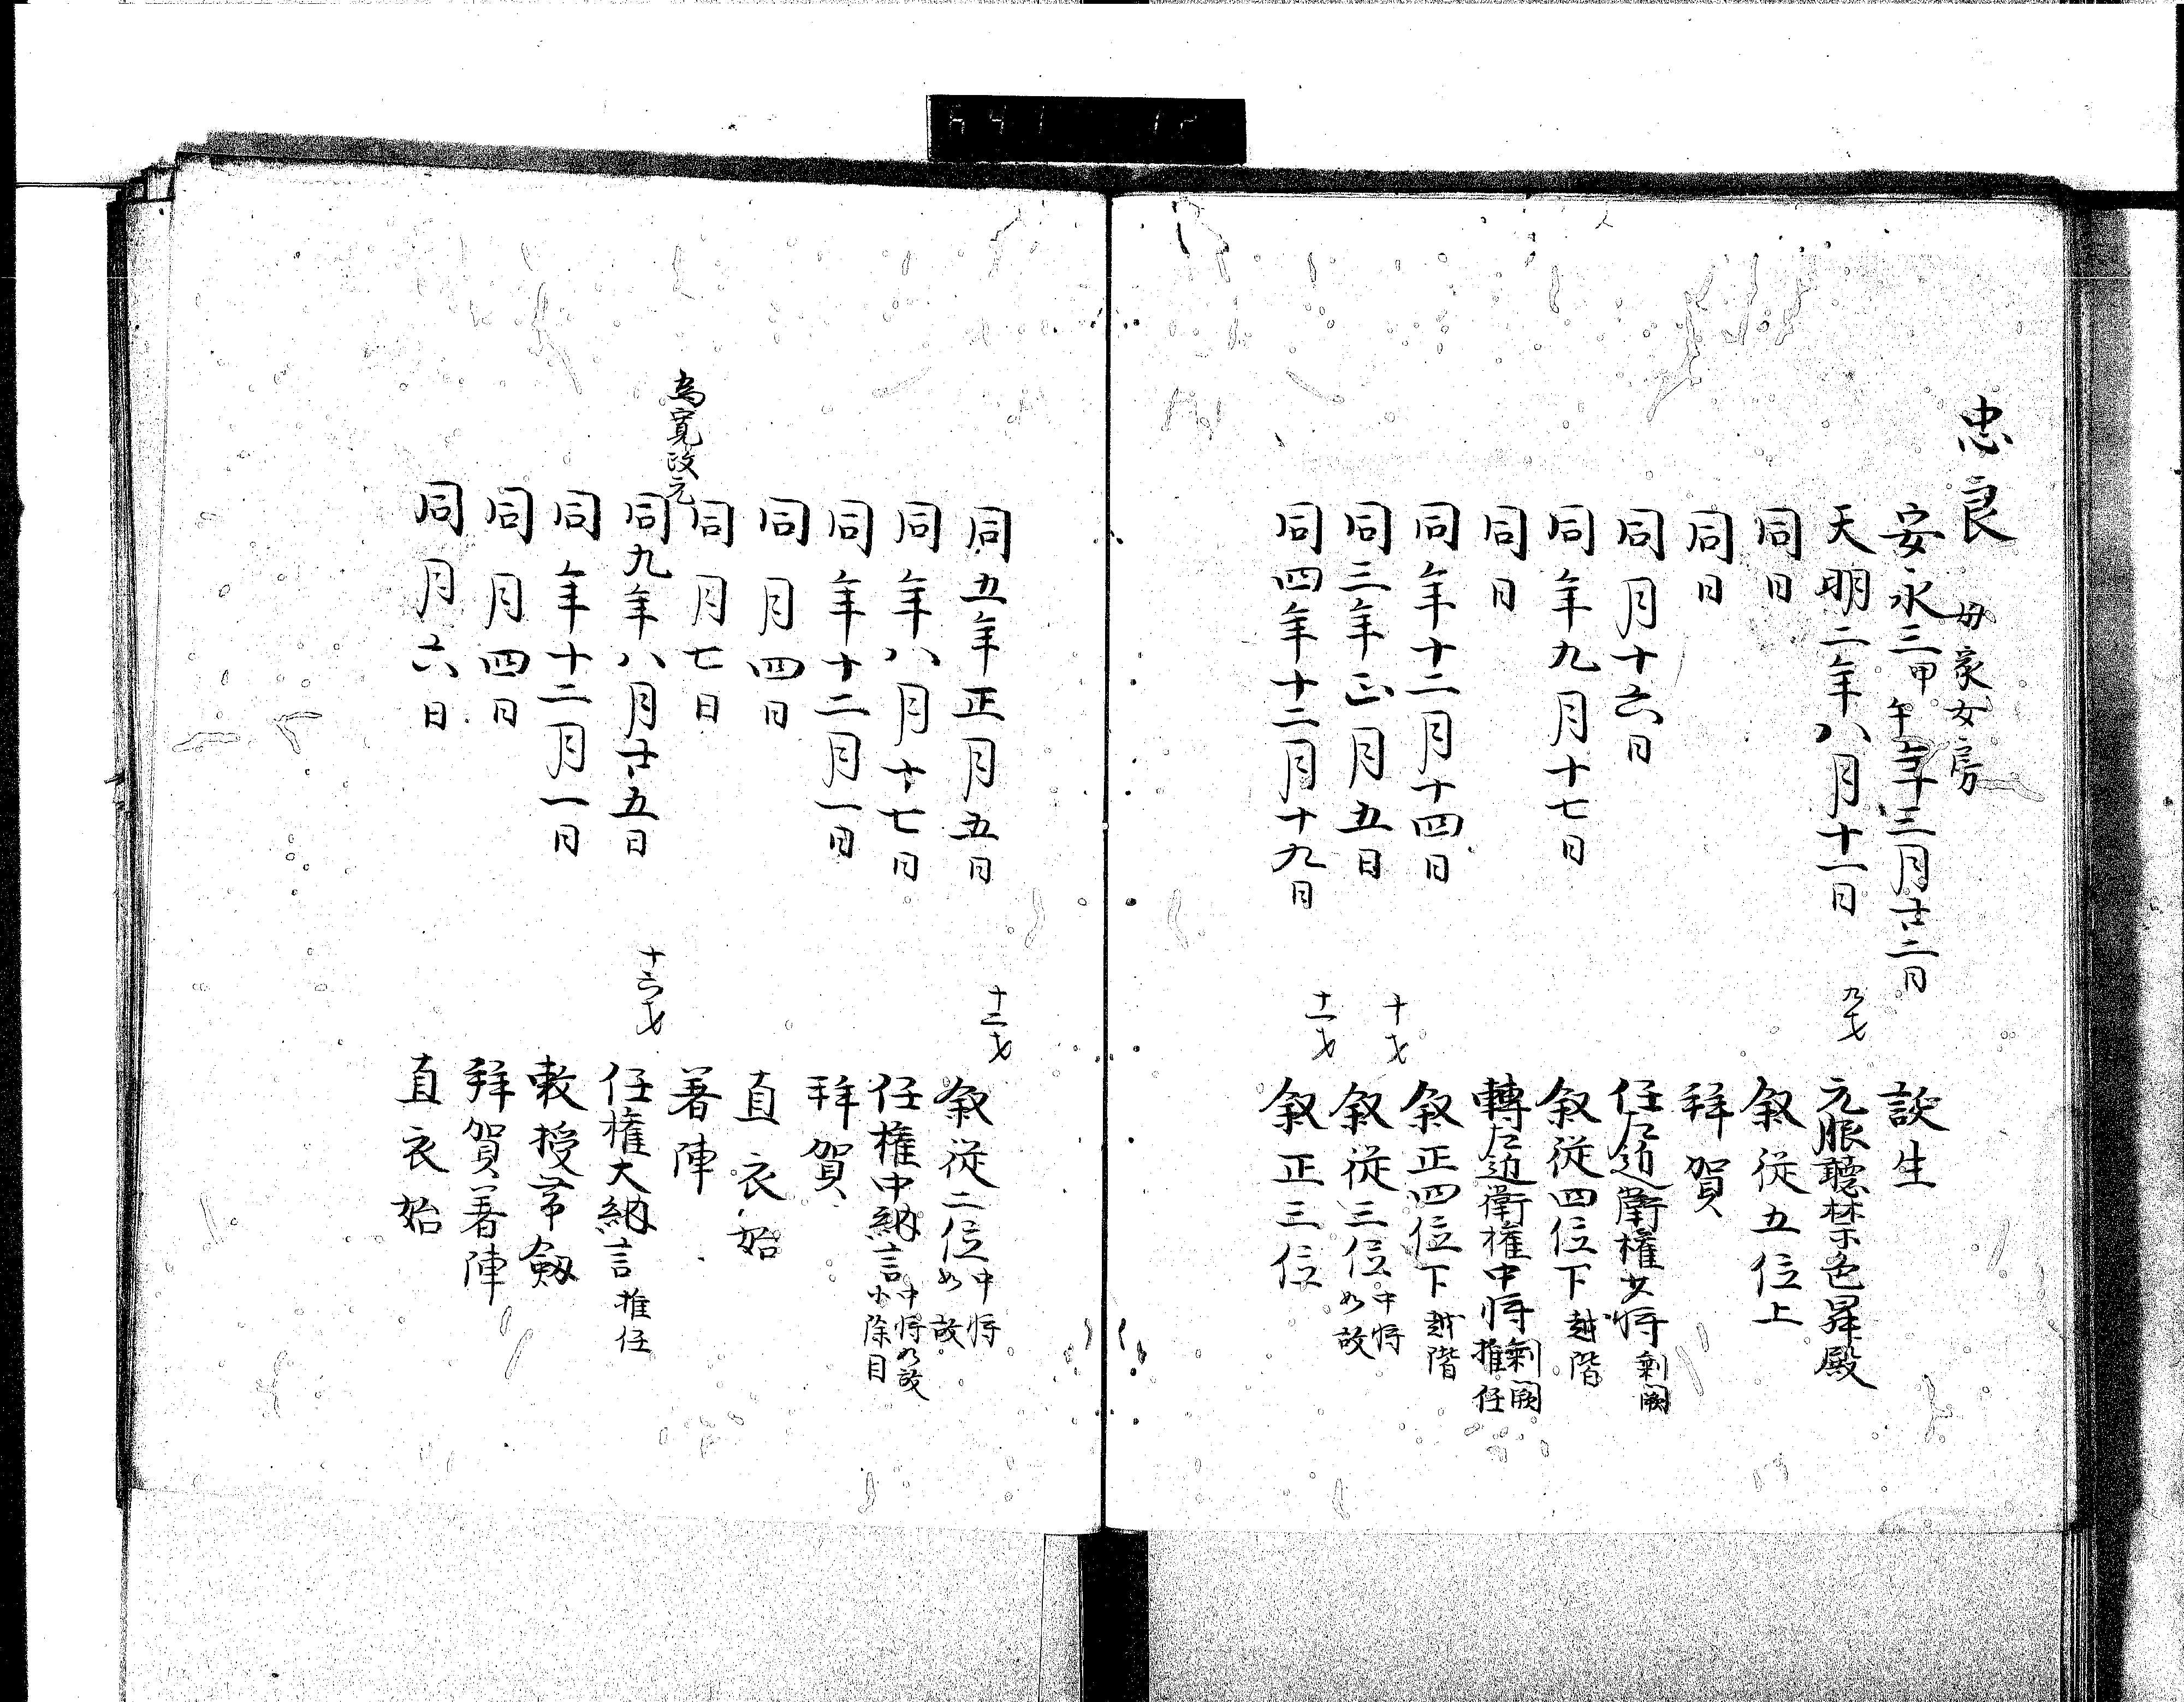 忠良 母家女房
安永三甲午年三月廿二日 誕生
天明二年八月十一日 九才 元服聴禁色昇殿
同日 叙従五位上
同日 拜賀
同月十六日 任左近衛権少将 剰闕
同年九月十七日 叙従四位下 越階
同日 轉左近衛権中将 剰闕 推任
同年十二月十四日 叙正四位下 越階
同三年正月五日 十才 叙従三位 中将如故
同四年十二月十九日 十一才 叙正三位
同五年正月五日 十二才 叙従二位 中将如故
同年八月十七日 任権中納言 中将如故 小除目
同年十二月一日 拜賀
同月四日 直衣始
同月七日 著陣
為寛政元
同九年八月廿五日 十六才 任権大納言 推任
同年十二月一日 敕授帯劔
同月四日 拜賀著陣
同月六日 直衣始